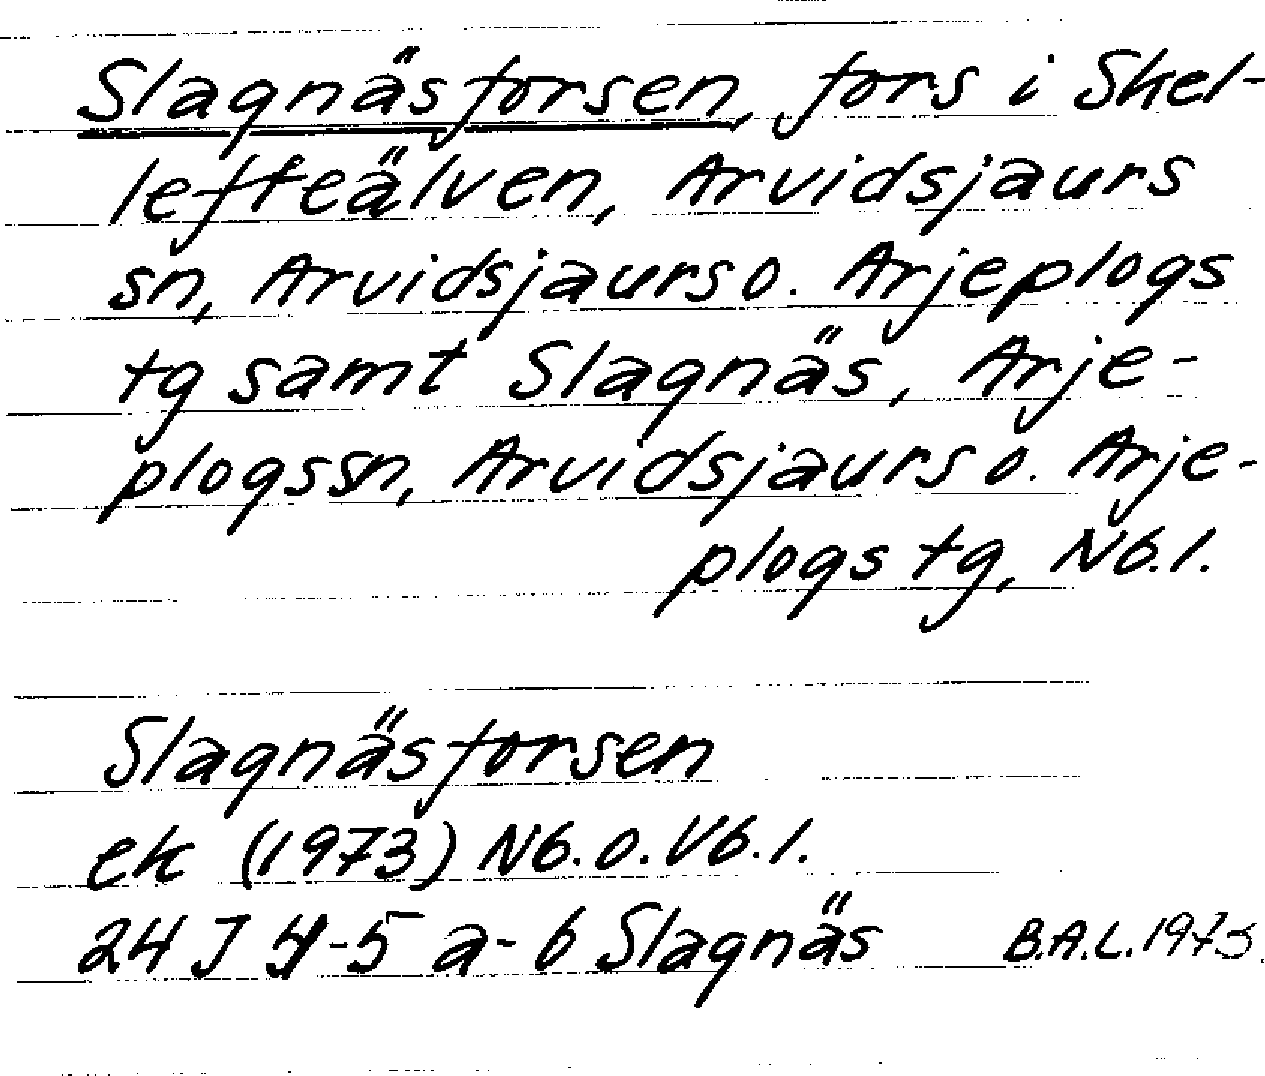 Slagnäsforsen, fors i Skel-
lefteälven, Arvidsjaurs
sn, Arvidsjaurs o. Arjeplogs
tg samt Slagnäs, Arje-
plogs sn, Arvidsjaurs o. Arje-
plogs tg, Nb. l.
Slagnäsforsen
ek (1973) Nb. o. Vb. l.
24 J 4-5 a-b Slagnäs B.A.L. 1973.